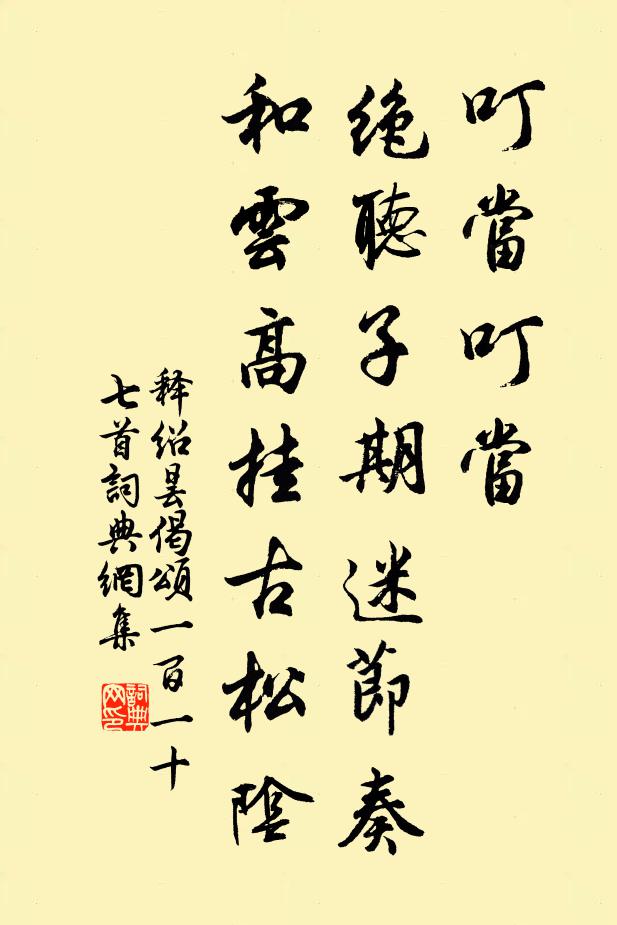 叮當叮當
絶聽子期迷節奏
和雲高挂古松陰
释紹曇偈頌一百一十
七首詞典網集
詞典
网印